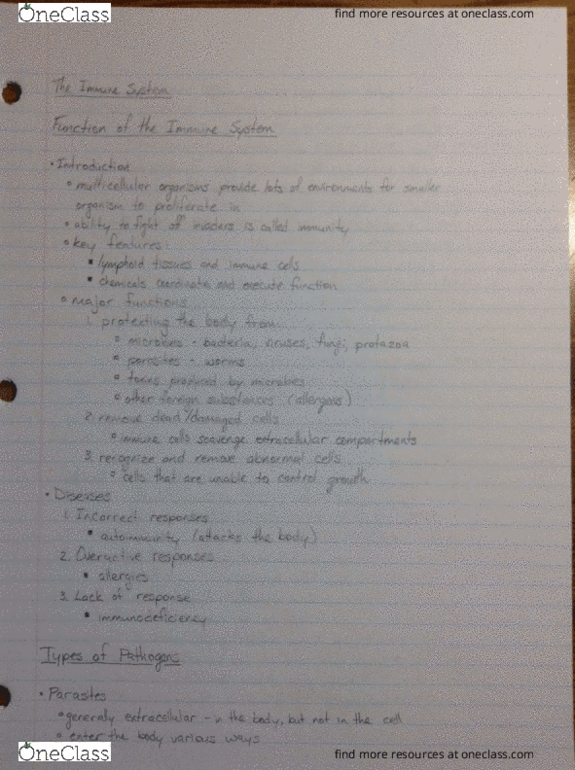 OneClass
find more resources at oneclass.com
The Immune System
Function of the Immune System
• Introduction
• multicellular organisms provide lots of environments for smaller
organism to proliferate in
• ability to fight off invaders is called immunity
• key features:
▪ lymphoid tissues and immune cells
▪ chemicals coordinate and execute function
• major functions
1. protecting the body from:
• microbes - bacteria, viruses, fungi, protazoa
• parasites - worms
• toxins produced by microbes
• other foreign substances (allergens)
2. remove dead/damaged cells
• immune cells scavenge extracellular compartments
3. recognize and remove abnormal cells
• cells that are unable to control growth
• Diseases
1. Incorrect responses
▪ autoimmunity (attacks the body)
2. Overactive responses
▪ allergies
3. Lack of response
▪ immunodeficiency
Types of Pathogens
• Parasites
• generally extracellular - in the body, but not in the cell
• enter the body various ways
OneClass
find more resources at oneclass.com